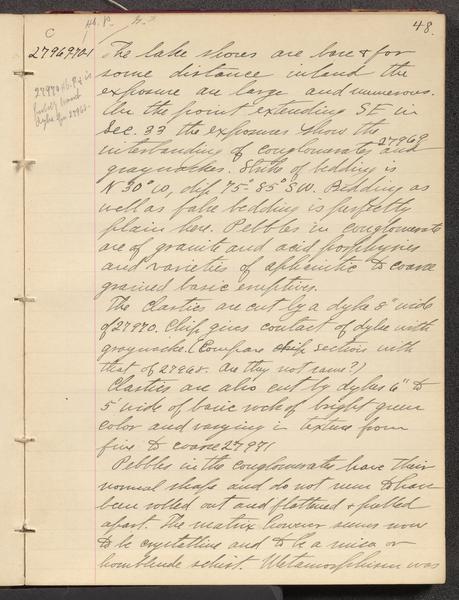 48.
C
27969-70-1
The lake shores are bare & for
some distance inland the
exposure are large and numerous.
On the point extending SE in
Sec. 33 the exposures show the
interbanding of conglomerates and 27969
graywackes. Strike of bedding is
N 30° W, dip 75°-85° SW. Bedding as
well as false bedding is perfectly
plain here. Pebbles in conglomerate
are of granite and acid porphyries
and varieties of aphanitic to coarse
grained basic eruptives.
The Clastics are cut by a dyke 8" wide
of 27970. Chip gives contact of dyke with
graywacke. (Compare section with
that of 27968. Are they not same?)
Clastics are also cut by dykes 6" to
5' wide of basic rock of bright green
color and varying in texture from
fine to coarse 27971
Pebbles in the conglomerates have their
normal shape and do not seem to have
been rolled out and flattened & pulled
apart. The matrix however seems now
to be crystalline and to be a mica or
hornblende schist. Metamorphism was